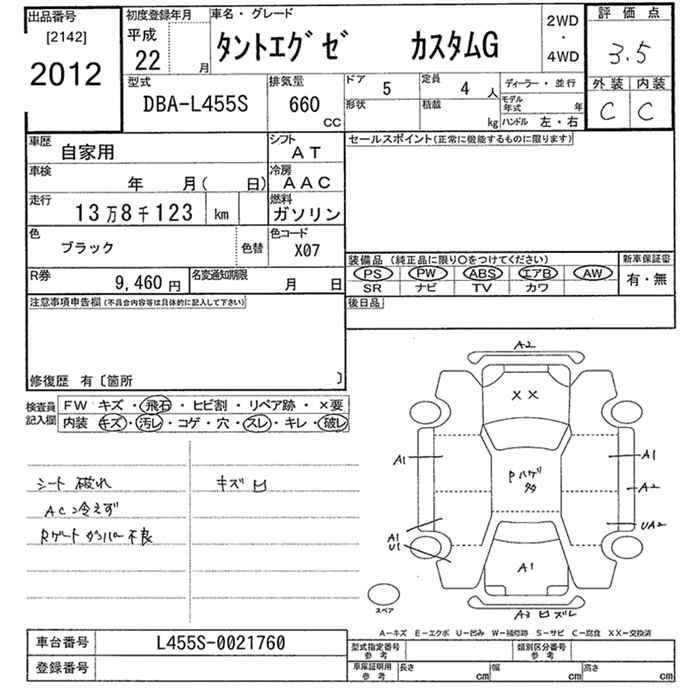 出品番号
[2142]
2012
初度登録年月
平成
22 月
車名・グレード
タントエグゼ カスタムG
2WD
・
4WD
評価点
3.5
外装 内装
C C
型式
DBA-L455S
排気量
660
CC
ドア 5
形状
定員 4 人
積載 kg
ディーラー・並行
モデル年式 年
ハンドル 左・右
車歴
自家用
シフト
AT
車検
年 月( 日)
冷房
AAC
走行
13万8千123 km
燃料
ガソリン
色
ブラック
色替
色コード
X07
R券
9,460円
名変通知期限
月 日
セールスポイント(正常に機能するものに限ります)
装備品 (純正品に限り○をつけてください)
PS PW ABS エアB AW
SR ナビ TV カワ
新車保証書
有・無
後日品
注意事項申告欄(不具合内容等は具体的に記入して下さい)
修復歴 有〔箇所 〕
検査員
記入欄
FW キズ・飛石・ヒビ割・リペア跡・×要
内装 キズ・汚レ・コゲ・穴・スレ・キレ・破レ
シート 破れ
キズ 凹
AC冷えず
Rゲート ダンパー不良
A2
XX
A1
A1
A2
Pハゲ
多
UA2
A1
U1
A1
スペア
A3 凹 ズレ
A-キズ E-エクボ U-凹み W-補修跡 S-サビ C-腐食 XX-交換済
車台番号
L455S-0021760
登録番号
型式指定番号
参考
類別区分番号
参考
車庫証明用
参考
長さ cm
幅 cm
高さ cm